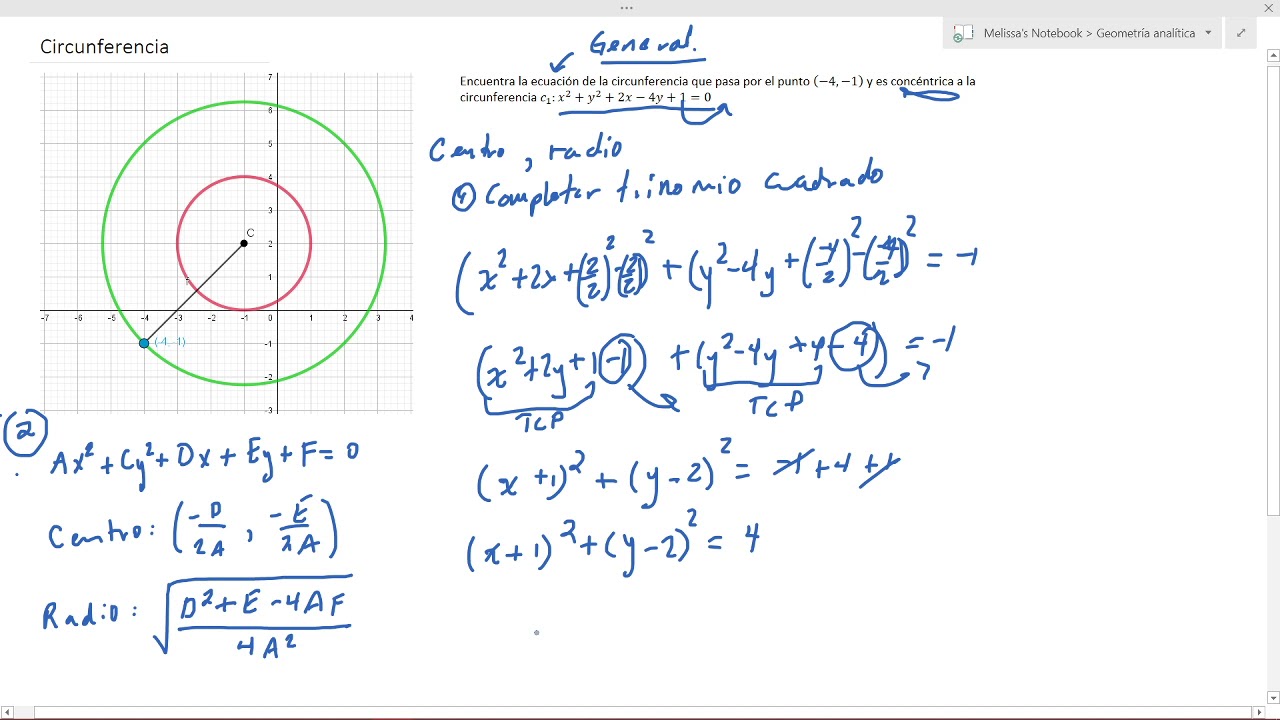 Melissa's Notebook > Geometría analítica
Circunferencia
General.
Encuentra la ecuación de la circunferencia que pasa por el punto (−4, −1) y es concéntrica a la
circunferencia c₁: x² + y² + 2x − 4y + 1 = 0
Centro, radio
① Completar trinomio cuadrado
(x² + 2x + (2/2)² - (2/2)² + (y² - 4y + (-4/2)² - (-4/2)² = -1
(x² + 2y + 1 - 1) + (y² - 4y + 4 - 4) = -1
TCP TCP
(x + 1)² + (y - 2)² = -1 + 4 + 1
(x + 1)² + (y - 2)² = 4
7
6
5
4
3
2
1
-1
-2
-3
-7 -6 -5 -4 -3 -2 -1 0 1 2 3 4
C
r
(-4, -1)
②
Ax² + Cy² + Dx + Ey + F = 0
Centro: (-D/2A, -E/2A)
Radio: √((D² + E - 4AF)/4A²)